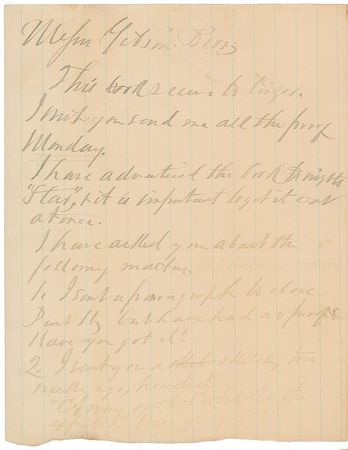 Messrs Gibson Bros,
This book seems to linger.
I wish you send me all the proof
Monday.
I have advertised the book tonights
"Star", & it is important to get it out
at once.
I have asked you about the
following matters.
1. I sent a paragraph to close
Part II, but have had no proof.
Have you got it?
2. I sent you a sketch, two
weeks ago, headed
"Away with